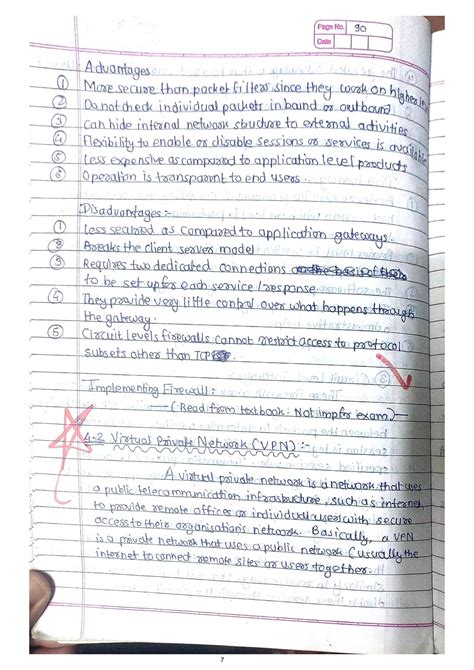 Page No. 90
Date
Advantages
① More secure than packet filters since they work on higher
② Do not check individual packets inbound or outbound
③ Can hide internal network structure to external activities
④ Flexibility to enable or disable sessions or services is available
⑤ Less expensive as compared to application level products
⑥ Operation is transparent to end users.
Disadvantages :-
① Less secured as compared to application gateways
② Breaks the client server model
③ Requires two dedicated connections
to be set up for each service/response.
④ They provide very little control over what happens through
the gateway.
⑤ Circuit levels firewalls cannot restrict access to protocol
subsets other than TCP
Implementing Firewall :
— (Read from textbook. Not imp for exam) —
4.2 Virtual Private Network (VPN) :-
A virtual private network is a network that uses
a public telecommunication infrastructure, such as internet,
to provide remote offices or individual users with secure
access to their organisation's network. Basically, a VPN
is a private network that uses a public network (usually the
internet to connect remote sites or users together.
7